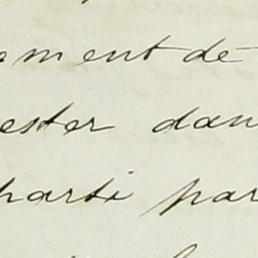 ement dé
ester dan
parti par